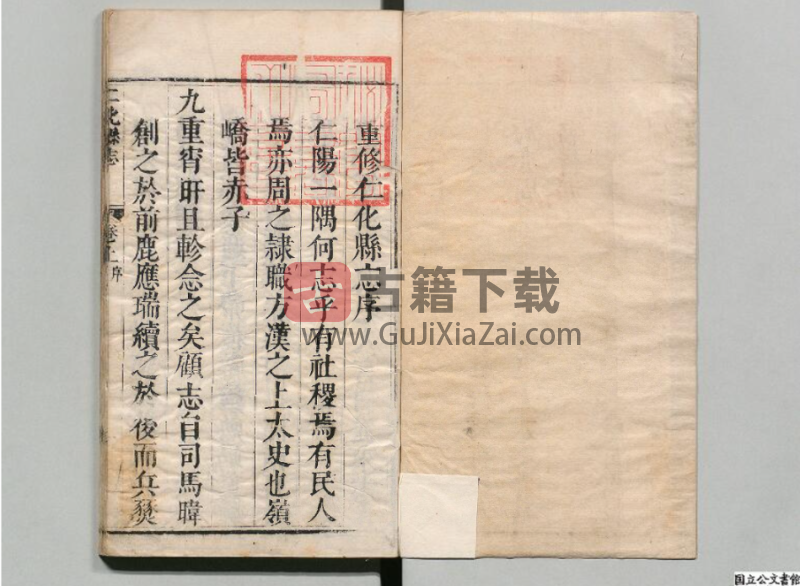 重修仁化縣志序
仁陽一隅何志乎有社稷焉有民人
焉亦周之隷職方漢之上太史也嶺
嶠皆赤子
九重宵旰且軫念之矣顧志自司馬暐
創之於前鹿應瑞續之於後而兵燹
仁化縣志
卷之上序
古籍下载
www.GuJiXiaZai.com
国立公文書館